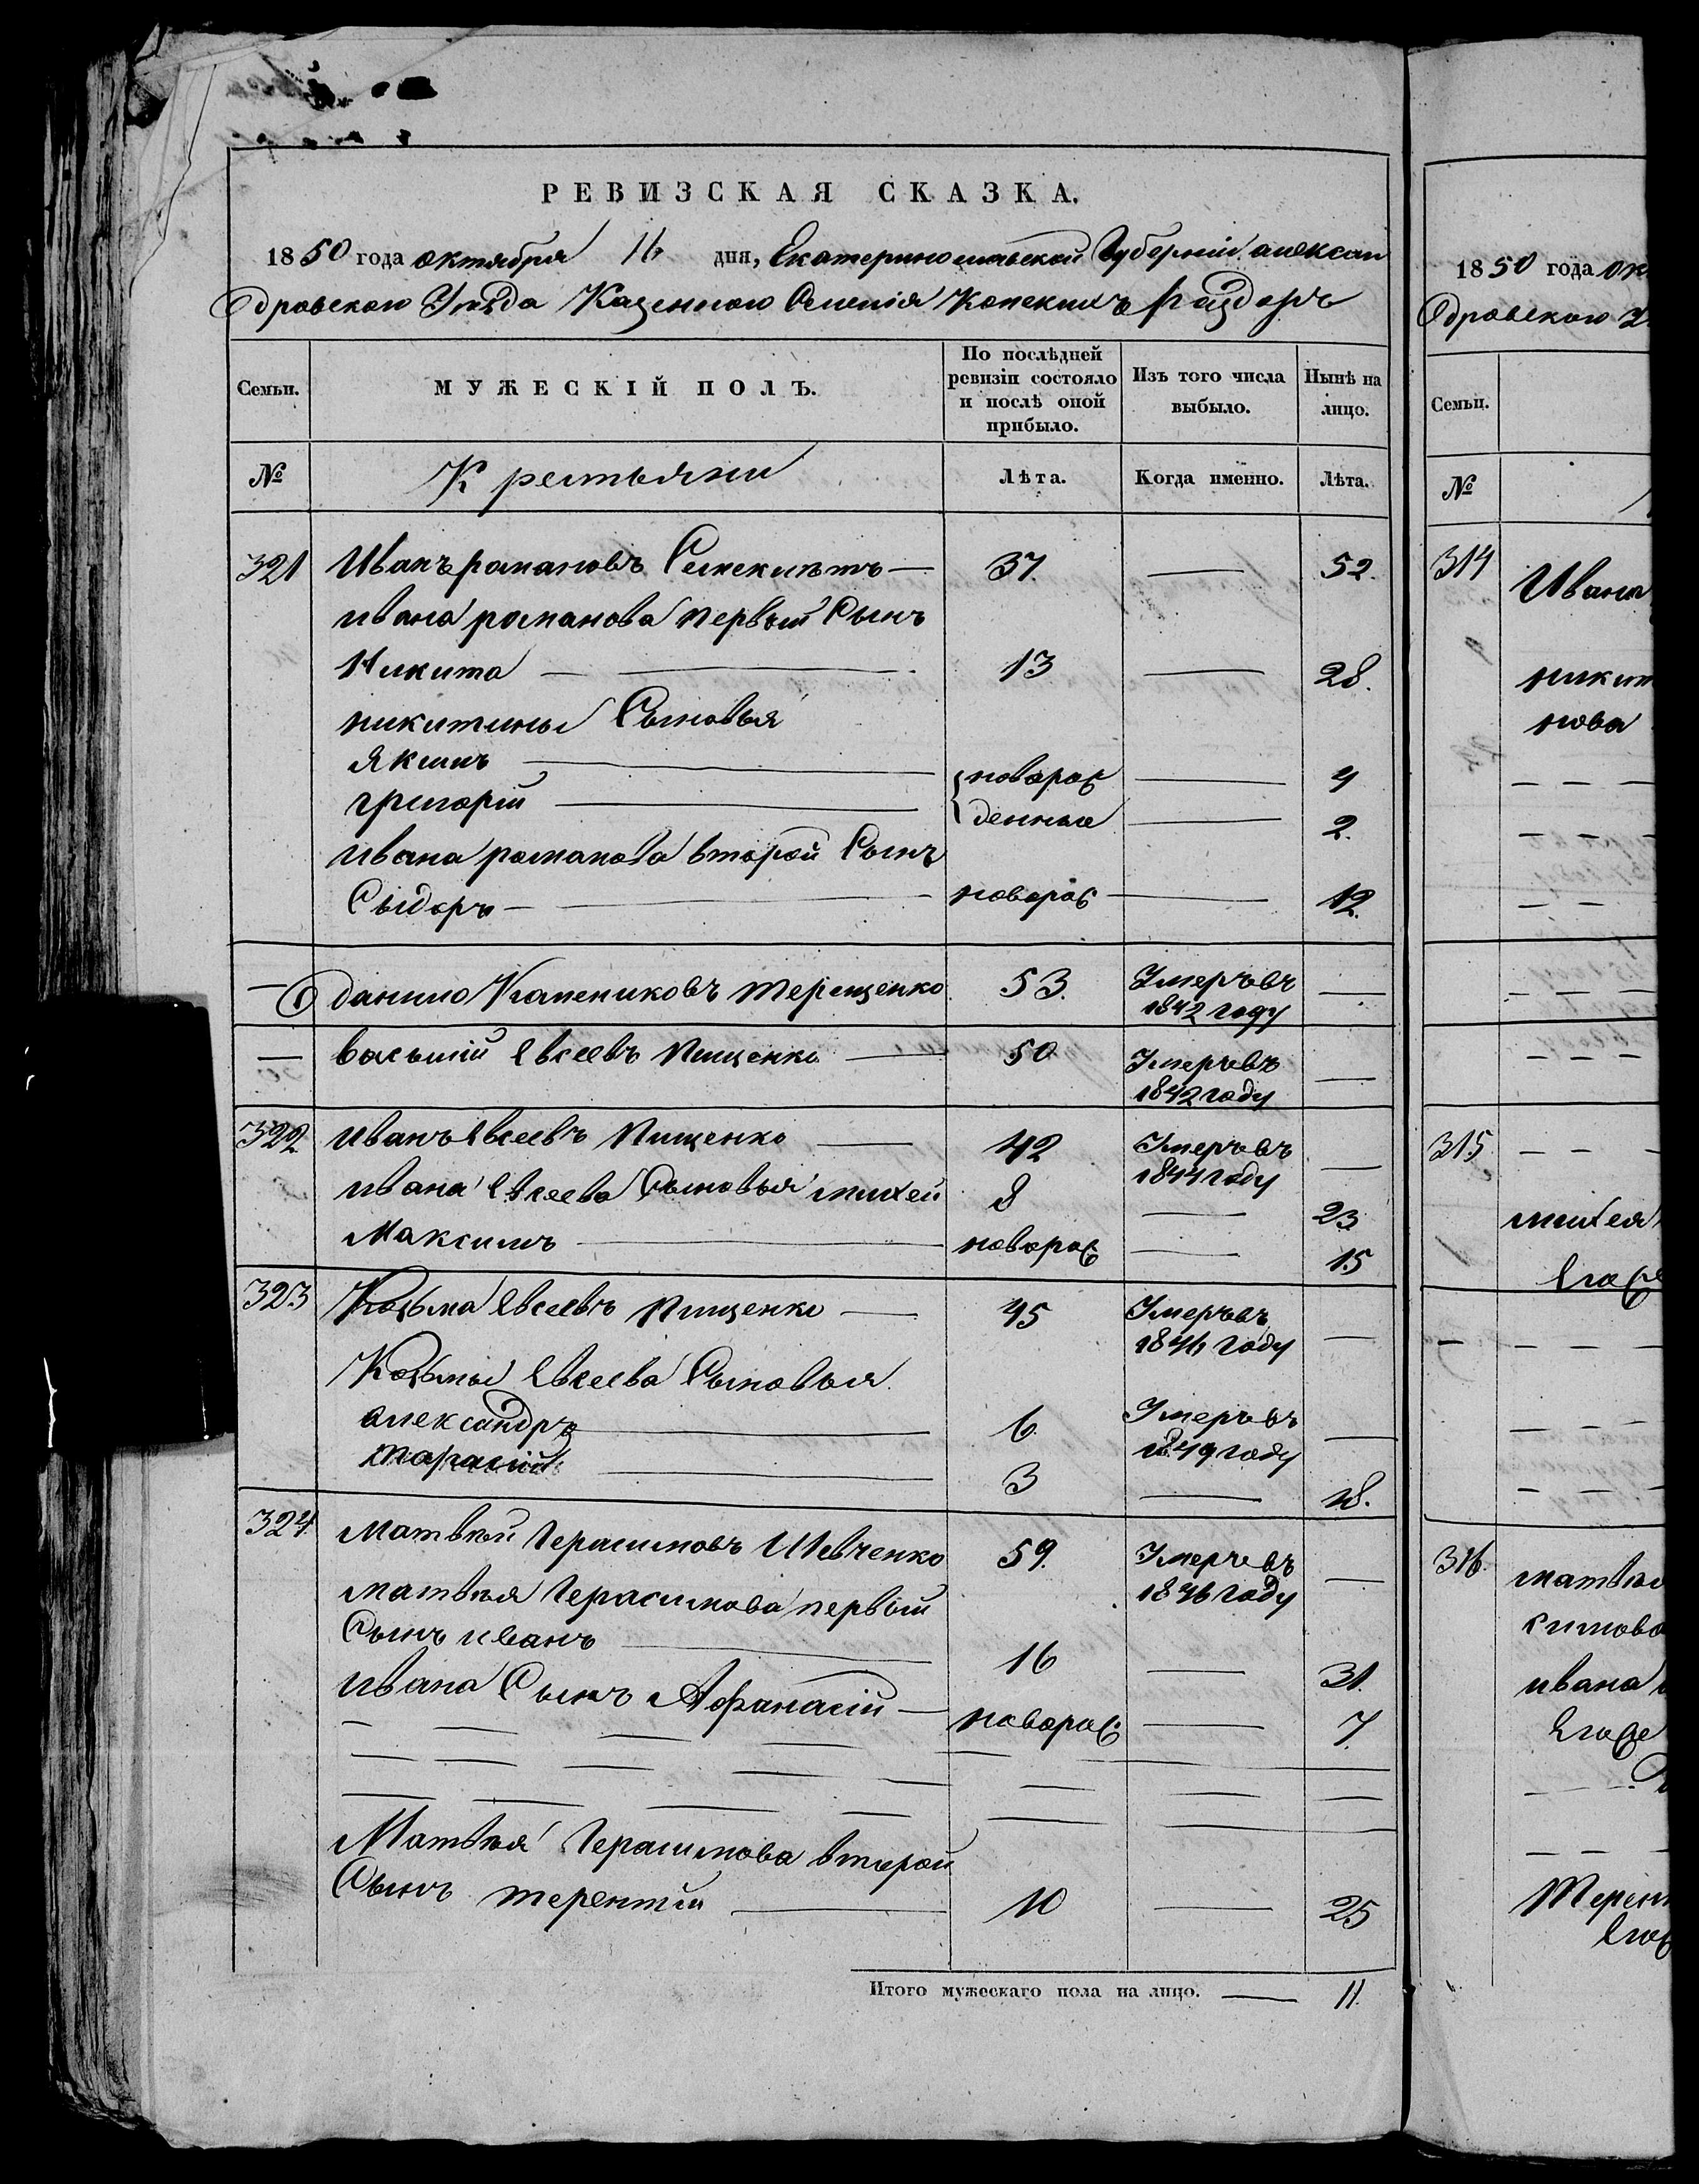 РЕВИЗСКАЯ СКАЗКА.
1850 года октября 16 дня, Екатеринославской Губерніи Алексан
дровского Уезда Казенного Селенія Конскихъ Раздоръ
Семьи. МУЖЕСКІЙ ПОЛЪ. По послѣдней ревизіи состояло и послѣ оной прибыло. Изъ того числа выбыло. Нынѣ на лицо.
№ Крестьяни Лѣта. Когда именно. Лѣта.
321 Иванъ романовъ — 37. — 52.
ивана романова первый Сынъ
Никита — 13 — 28.
никитины Сыновья
Якимъ — новорож — 4
григорій — денные — 2.
ивана романова второй Сынъ
Сидоръ — новорож — 12.
— данило терещенко 53. Умеръ въ 1842 году —
— василій Евсеевъ Пищенко — 50 Умеръ въ 1842 году —
322 иванъ Евсеевъ Пищенко — 42 Умеръ въ 1844 году —
ивана Евсеева Сыновья михей 8 — 23
Максимъ — новорож — 15
323 Козьма Евсеевъ Пищенко — 45 Умеръ въ 1846 году —
Козьмы Евсеева Сыновья
александръ — 6 Умеръ въ 1849 году —
тарасій — 3 — 18.
324 матвѣй Герасимовъ Шевченко 59. Умеръ въ 1846 году —
матвѣя Герасимова первый
Сынъ иванъ — 16 — 31.
ивана Сынъ Афанасій — новорож — 7
Матвѣя Герасимова второй
Сынъ терентій — 10 — 25
Итого мужескаго пола на лицо. — 11.
1850 года ок
дровского У
Семьи.
№
314 Ивана
никит
нова
315
михея
Его же
—
316 матвѣя
симова
ивана
Его же
Терен
Его ж